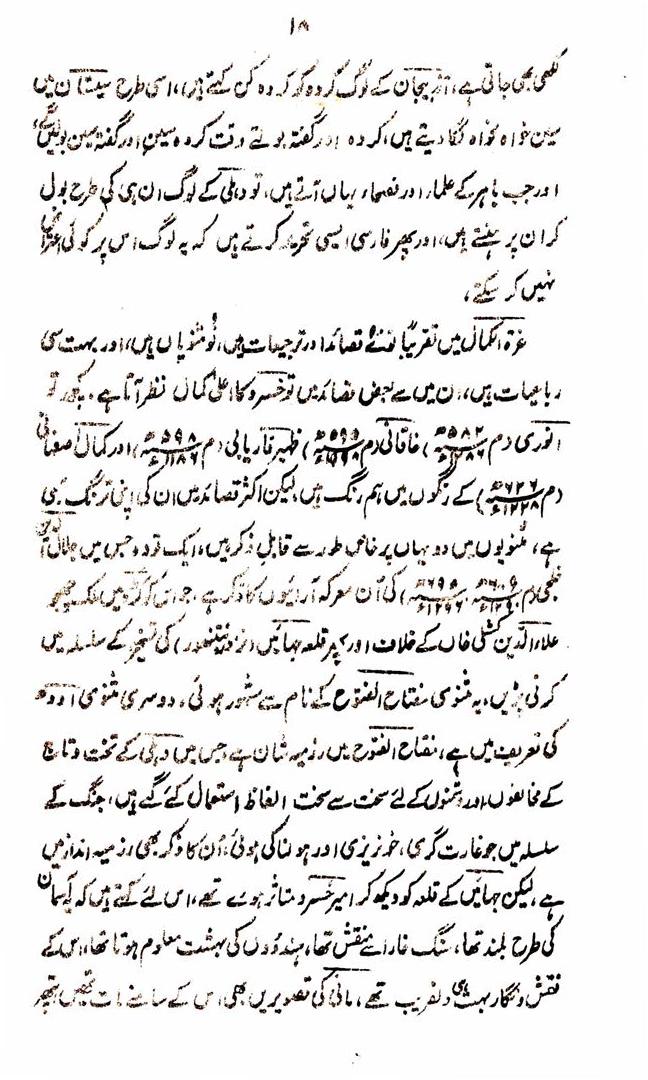 ۱۵
لکھی بھی جاتی ہے، آذربیجان کے لوگ کردہ کو کردہ کن کہتے ہیں، اسی طرح سیستان میں
سین خواہ مخواہ لگا دیتے ہیں، کردہ اور گفتہ بولتے وقت کردہ سین اور گفتہ سین بولیں گے،
اور جب باہر کے علماء اور فصحاء یہاں آتے ہیں، تو دہلی کے لوگ ان ہی کی طرح بول
کر ان پر ہنستے ہیں، اور پھر فارسی ایسی تحریر کرتے ہیں کہ یہ لوگ اس پر کوئی اعتراض
نہیں کر سکتے،
غرۃ الکمال میں تقریباً قصائد اور ترجیعات ہیں، نو مثنویاں ہیں، اور بہت سی
رباعیات ہیں، ان میں سے بعض قصائد میں تو خسرو کا اعلیٰ کمال نظر آتا ہے، کچھ تو
انوری (م ۵۸۲ھ ۱۱۸۷ء) خاقانی (م ۵۹۵ھ) ظہیر فاریابی (م ۵۹۸ھ) اور کمال اصفہانی
(م ۶۲۶ھ ۱۲۲۸ء) کے رنگوں میں ہم رنگ ہیں، لیکن اکثر قصائد میں ان کی اپنی ترنگ ہی
ہے، مثنویوں میں دو یہاں پر خاص طور سے قابلِ ذکر ہیں، ایک تو وہ جس میں جلال الدین
خلجی کی اُن معرکہ آرائیوں کا ذکر ہے، جو اس کو کڑہ میں ملک چھجو
علاء الدین کشلی خاں کے خلاف اور پھر قلعہ جہائیں (نزد رنتھنبور) کی تسخیر کے سلسلہ میں
کرنی پڑیں، یہ مثنوی مفتاح الفتوح کے نام سے مشہور ہوئی، دوسری مثنوی اودھ
کی تعریف میں ہے، مفتاح الفتوح میں رزمیہ شان ہے، جس میں دہلی کے تخت و تاج
کے مخالفوں اور دشمنوں کے لئے سخت سے سخت الفاظ استعمال کئے گئے ہیں، جنگ کے
سلسلہ میں جو غارت گری، خونریزی اور ہولناکی ہوئی، اُن کا ذکر بھی رزمیہ انداز میں
ہے، لیکن جہائیں کے قلعہ کو دیکھ کر امیر خسرو متاثر ہوئے تھے، اس لئے کہتے ہیں کہ یہ آسمان
کی طرح بلند تھا، سنگ خارا سے منقش تھا، ہندوؤں کی بہشت معلوم ہوتا تھا، اس کے
نقش و نگار بہت ہی دلفریب تھے، مانی کی تصویریں بھی اس کے سامنے مات تھیں، پتھر